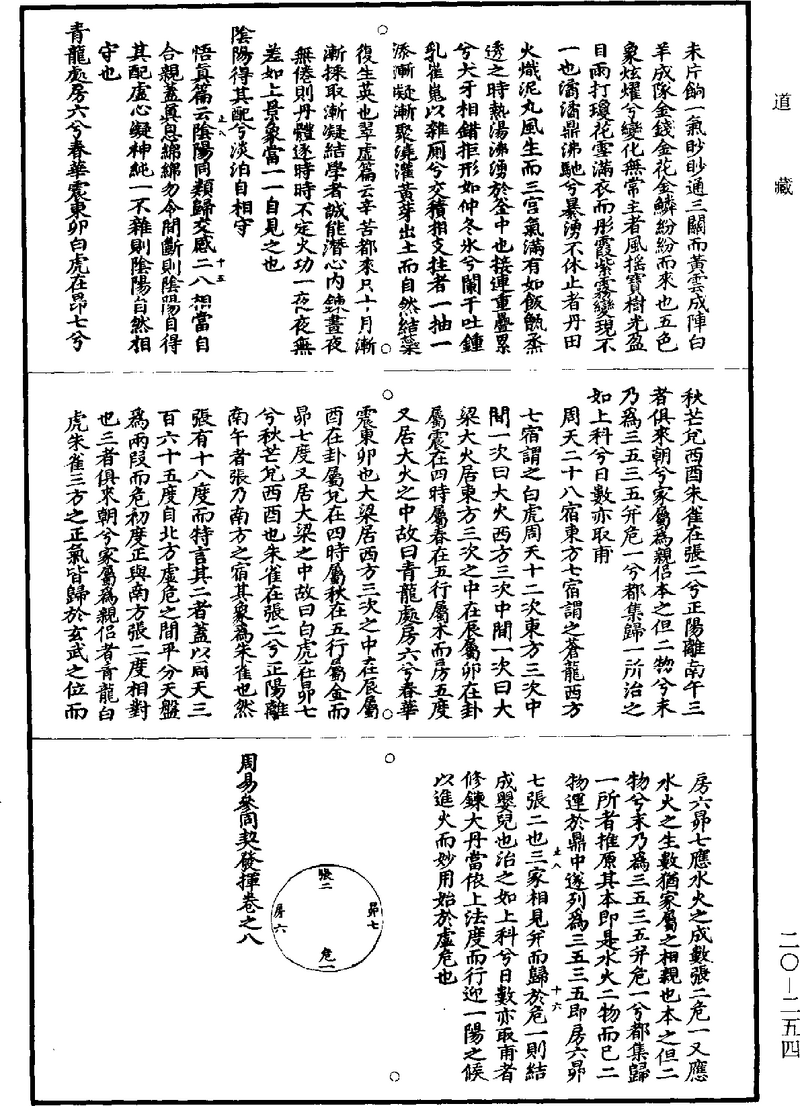 道藏
未片餉一氣眇眇通三關而黃雲成陣白
羊成隊金錢金花金鱗紛紛而來也五色
象炫燿兮變化無常主者風搖寶樹光盈
目雨打瓊花雪滿衣而彤霞紫霧變現不
一也潏潏鼎沸馳兮暴湧不休止者丹田
火熾泥丸風生而三宮氣滿有如飯甑烝
透之時熱湯沸湧於釜中也接連重疊累
兮犬牙相錯拒形如仲冬氷兮闌干吐鍾
乳崔嵬以雜厠兮交積相支拄者一抽一
添漸凝漸聚澆灌黃芽出土而自然結蘂
復生英也翠虛篇云辛苦都來只十月漸
漸採取漸凝結學者誠能潛心內鍊晝夜
無倦則丹體逐時時不定火功一夜夜無
差如上景象當一一自見之也
陰陽得其配兮淡泊自相守
悟眞篇云陰陽同類歸交感二八相當自
合親蓋眞息綿綿勿令間斷則陰陽自得
其配虛心凝神純一不雜則陰陽自然相
守也
青龍處房六兮春華震東卯白虎在昴七兮
秋芒兌西酉朱雀在張二兮正陽離南午三
者俱來朝兮家屬爲親侶本之但二物兮末
乃爲三五三五并危一兮都集歸一所治之
如上科兮日數亦取甫
周天二十八宿東方七宿謂之蒼龍西方
七宿謂之白虎周天十二次東方三次中
間一次曰大火西方三次中間一次曰大
梁大火居東方三次之中在辰屬卯在卦
屬震在四時屬春在五行屬木而房五度
又居大火之中故曰青龍處房六兮春華
震東卯也大梁居西方三次之中在辰屬
酉在卦屬兌在四時屬秋在五行屬金而
昴七度又居大梁之中故曰白虎在昴七
兮秋芒兌西酉也朱雀在張二兮正陽離
南午者張乃南方之宿其象爲朱雀也然
張有十八度而特言其二者蓋以周天三
百六十五度自北方虛危之間平分天盤
爲兩段而危初度正與南方張二度相對
也三者俱來朝兮家屬爲親侶者青龍白
虎朱雀三方之正氣皆歸於玄武之位而
房六昴七應水火之成數張二危一又應
水火之生數猶家屬之相親也本之但二
物兮末乃爲三五三五并危一兮都集歸
一所者推原其本即是水火二物而已二
物運於鼎中遂列爲三五三五即房六昴
七張二也三家相見并而歸於危一則結
成嬰兒也治之如上科兮日數亦取甫者
修鍊大丹當依上法度而行迎一陽之候
以進火而妙用始於虛危也
張二
昴七
房六
危一
周易參同契發揮卷之八
止八
十五
止八
十六
二〇—二五四